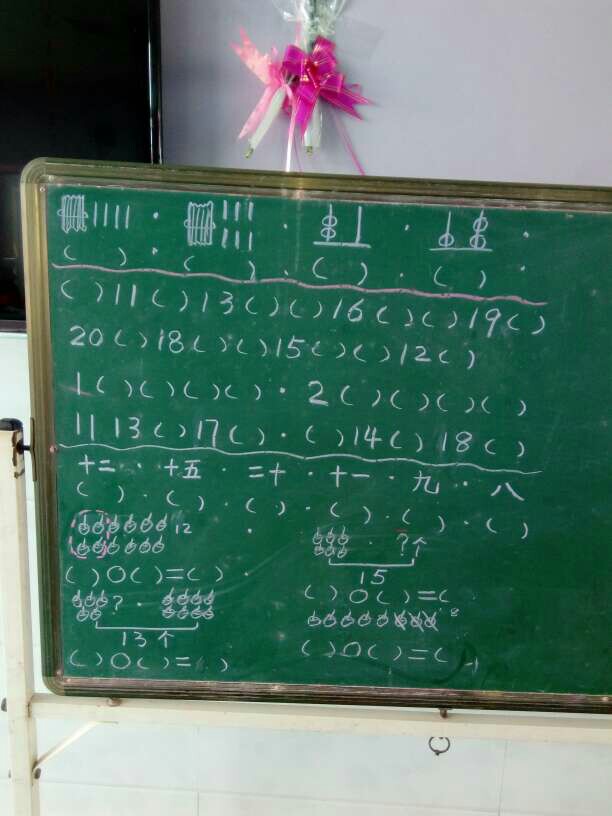 ( ) · ( ) · ( ) · ( )
( ) 11 ( ) 13 ( ) ( ) 16 ( ) ( ) 19 ( )
20 ( ) 18 ( ) ( ) 15 ( ) ( ) 12 ( )
1 ( ) ( ) ( ) ( ) · 2 ( ) ( ) ( ) ( )
11 13 ( ) 17 ( ) · ( ) 14 ( ) 18 ( )
十二 · 十五 · 二十 · 十一 · 九 · 八
( ) · ( ) · ( ) · ( ) · ( ) · ( )
12
?个
15
( ) ○ ( ) = ( )
( ) ○ ( ) = (
?
13个
8
( ) ○ ( ) = ( )
( ) ○ ( ) = (